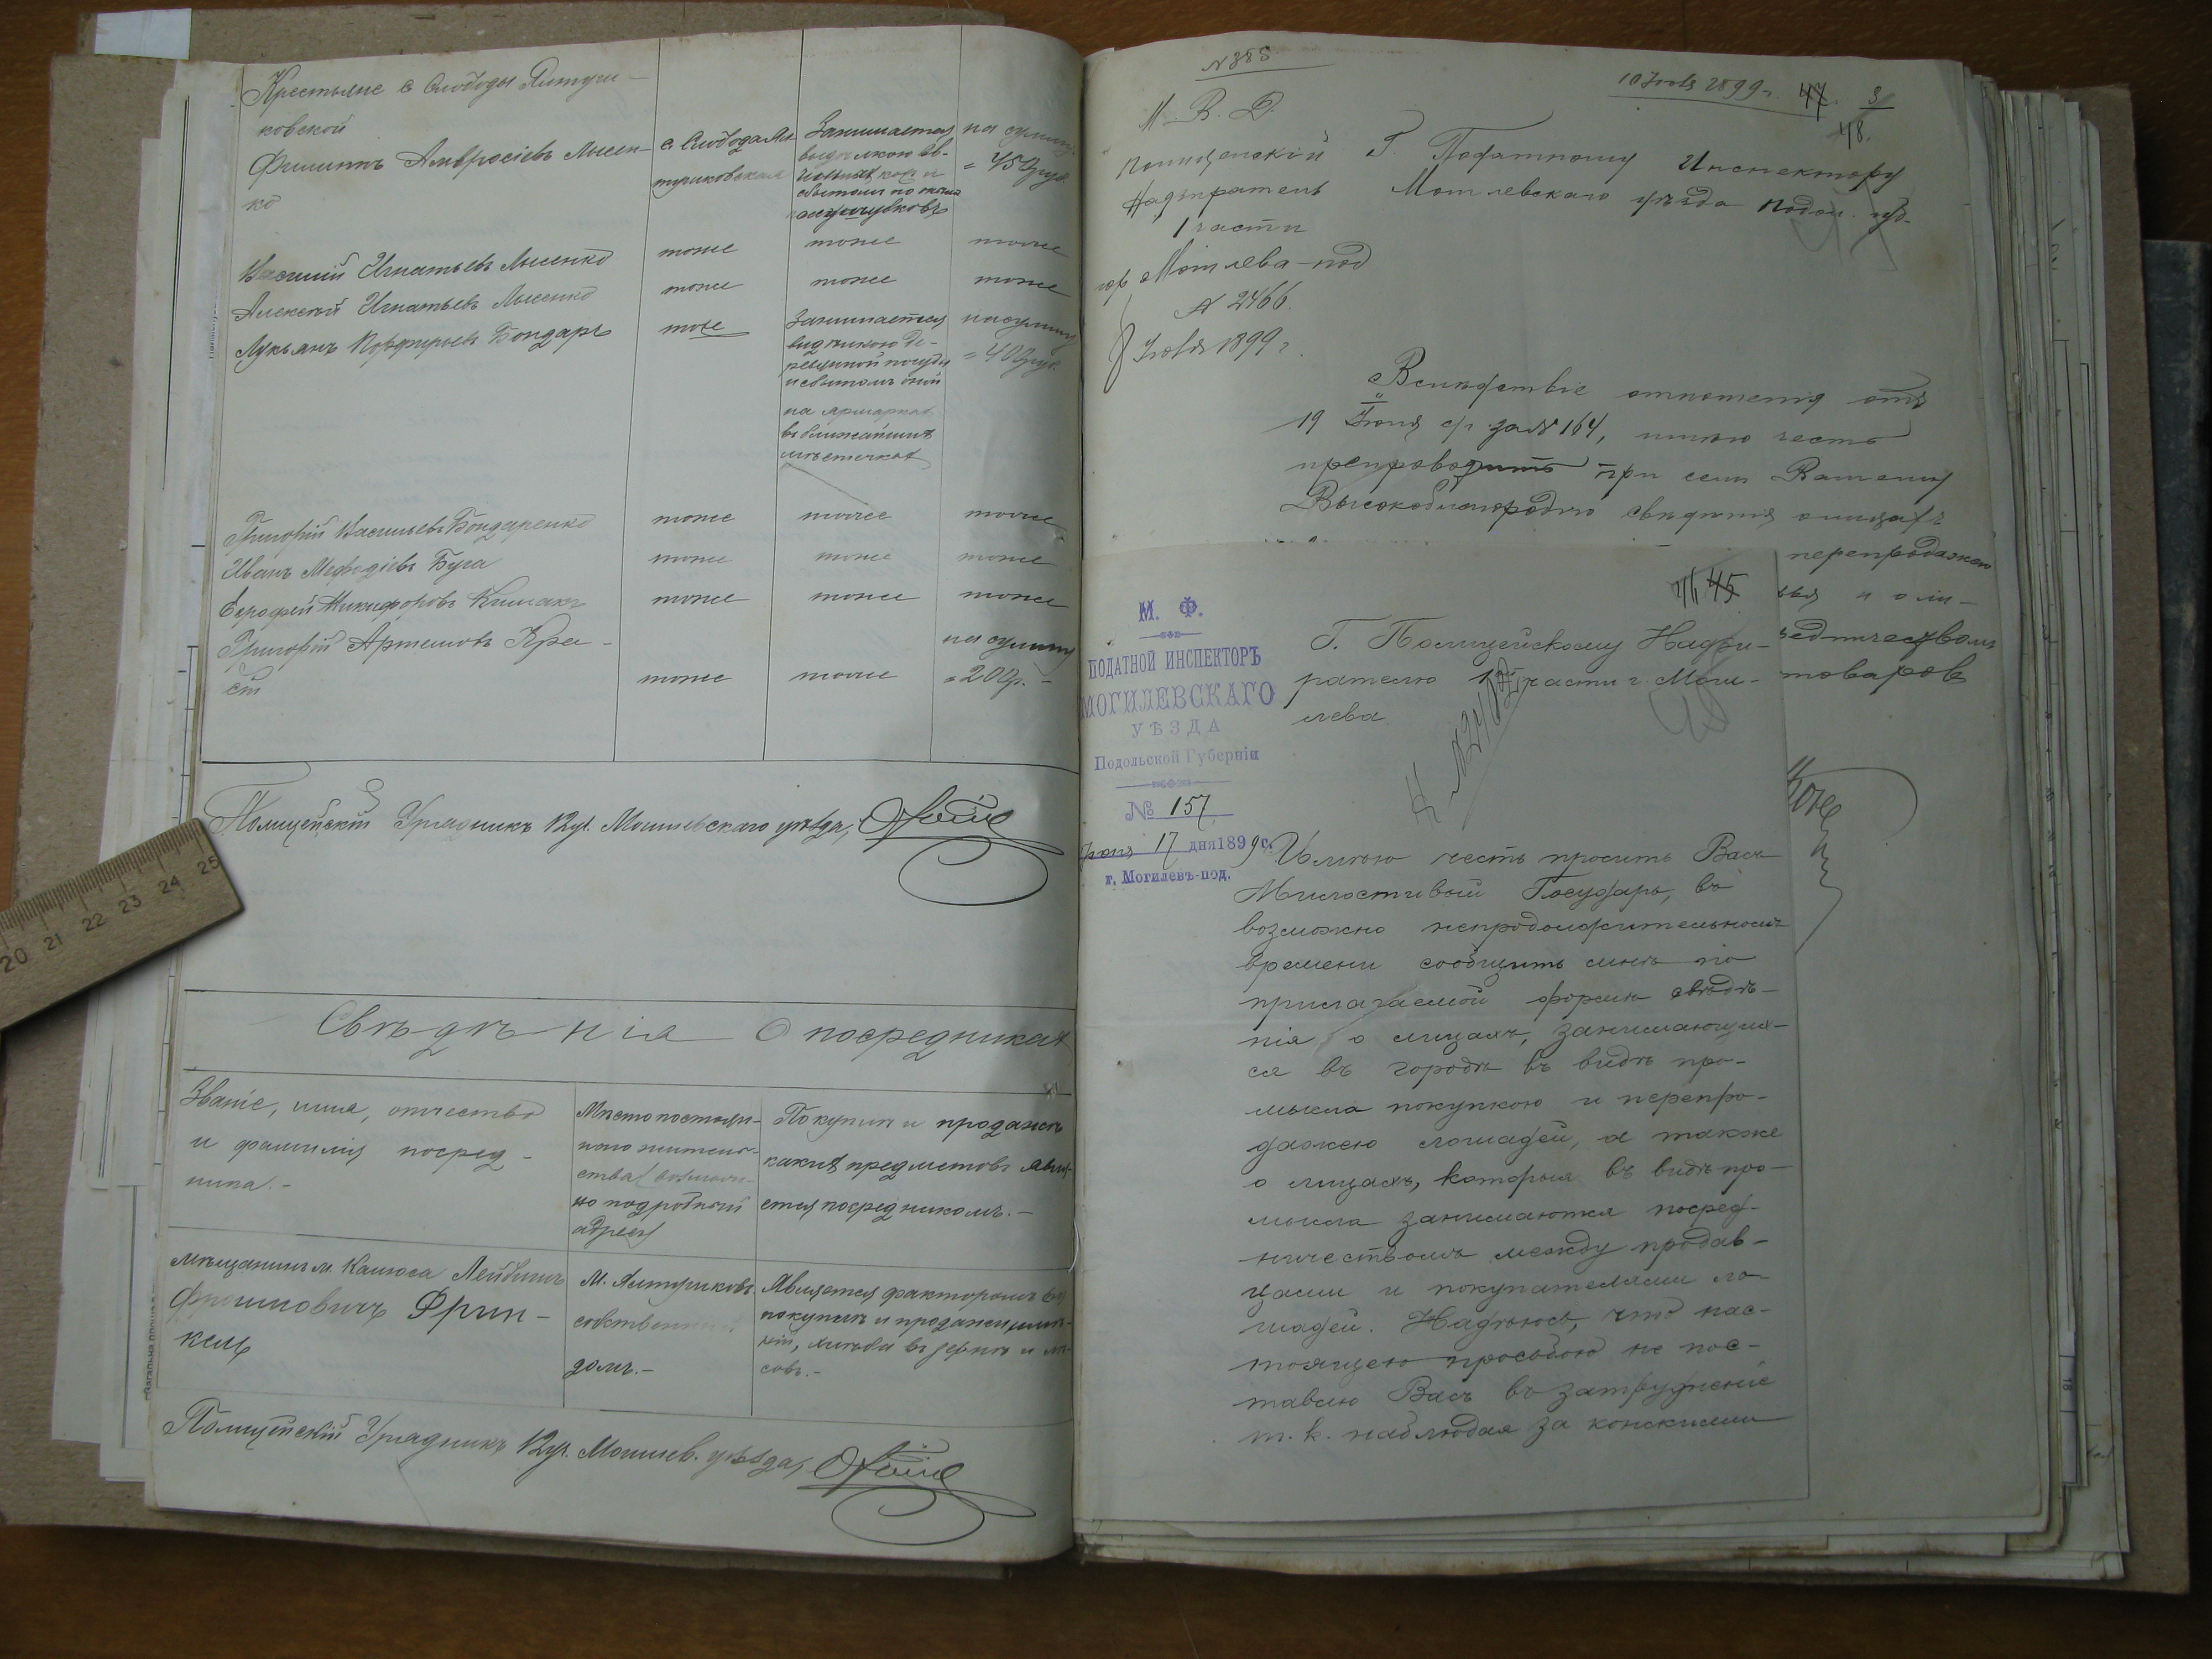 Крестьяне с Слободы Ялтуш-
ковской
Филиппъ Амвросіевъ Лысен-
ко
с Слобода Ял-
тушковская
Занимается
выдѣлкою ов-
чинныхъ кож и
сбытомъ по окольн
на сумму
= 450 руб.
Василій Игнатьевъ Лысенко
тоже
тоже
тоже
Алексѣй Игнатьевъ Лысенко
тоже
тоже
тоже
Лукьянъ Порфирьевъ Бондарь
тоже
Занимается
выдѣлкою де-
ревянной посуды
и сбытомъ оной
на ярмаркахъ
въ ближайшихъ
мѣстечкахъ
на сумму
= 400 руб.
Григорій Васильевъ Бондаренко
тоже
тоже
тоже
Иванъ Мефодіевъ Буга
тоже
тоже
тоже
Ерофей Никифоровъ
тоже
тоже
тоже
Григорій Артемовъ
тоже
тоже
на сумму
= 200 р. -
Полицейскій Урядникъ 12 уч. Могилевскаго уѣзда,
Свѣдѣнія О посредникахъ
Званіе, имя, отчество
и фамилія посред-
ника. -
Мѣсто постоян-
наго житель-
ства (возмож-
но подробный
адресъ)
Покупки и продажи
какихъ предметовъ явля-
ется посредникомъ. -
Мѣщанинъ м. Калюса Лейбишъ
Фроимовичъ Френ-
кель
М. Ялтушковъ
собственный
домъ. -
Является факторомъ въ
покупкѣ и продажи имѣ-
ній, хлѣба въ зернѣ и лѣ-
совъ. -
Полицейскій Урядникъ 12 уч. Могилев. уѣзда,
№ 385
10 Іюля 1899 г. 47. 48.
М. В. Д.
Полицейскій
Надзиратель
1 части
гор. Могилева-под
№ 2466.
8 Іюля 1899 г.
Г. Податному Инспектору
Могилевскаго уѣзда Подол. губ.
Вслѣдствіе отношенія отъ
19 Іюня с/г за № 164, имѣю честь
препроводить при семъ Вашему
Высокоблагородію свѣдѣнія о лицахъ
перепродажею
и о ли-
товаровъ
46 45
М. Ф.
ПОДАТНОЙ ИНСПЕКТОРЪ
МОГИЛЕВСКАГО
УѢЗДА
Подольской Губерніи
№ 157
Іюня 17 дня 1899 г.
г. Могилевъ-под.
Г. Полицейскому Надзи-
рателю 1й части г. Моги-
лева
Имѣю честь просить Васъ
Милостивый Государь, въ
возможно непродолжительномъ
времени сообщить мнѣ по
прилагаемой формѣ свѣдѣ-
нія о лицахъ, занимающих-
ся въ городѣ въ видѣ про-
мысла покупкою и перепро-
дажею лошадей, а также
о лицахъ, которыя въ видѣ про-
мысла занимаются посред-
ничествомъ между продав-
цами и покупателями ло-
шадей. Надѣюсь, что нас-
тоящею просьбою не пос-
тавлю Васъ въ затрудненіе
т. к. наблюдая за конскими
20 21 22 23 24 25